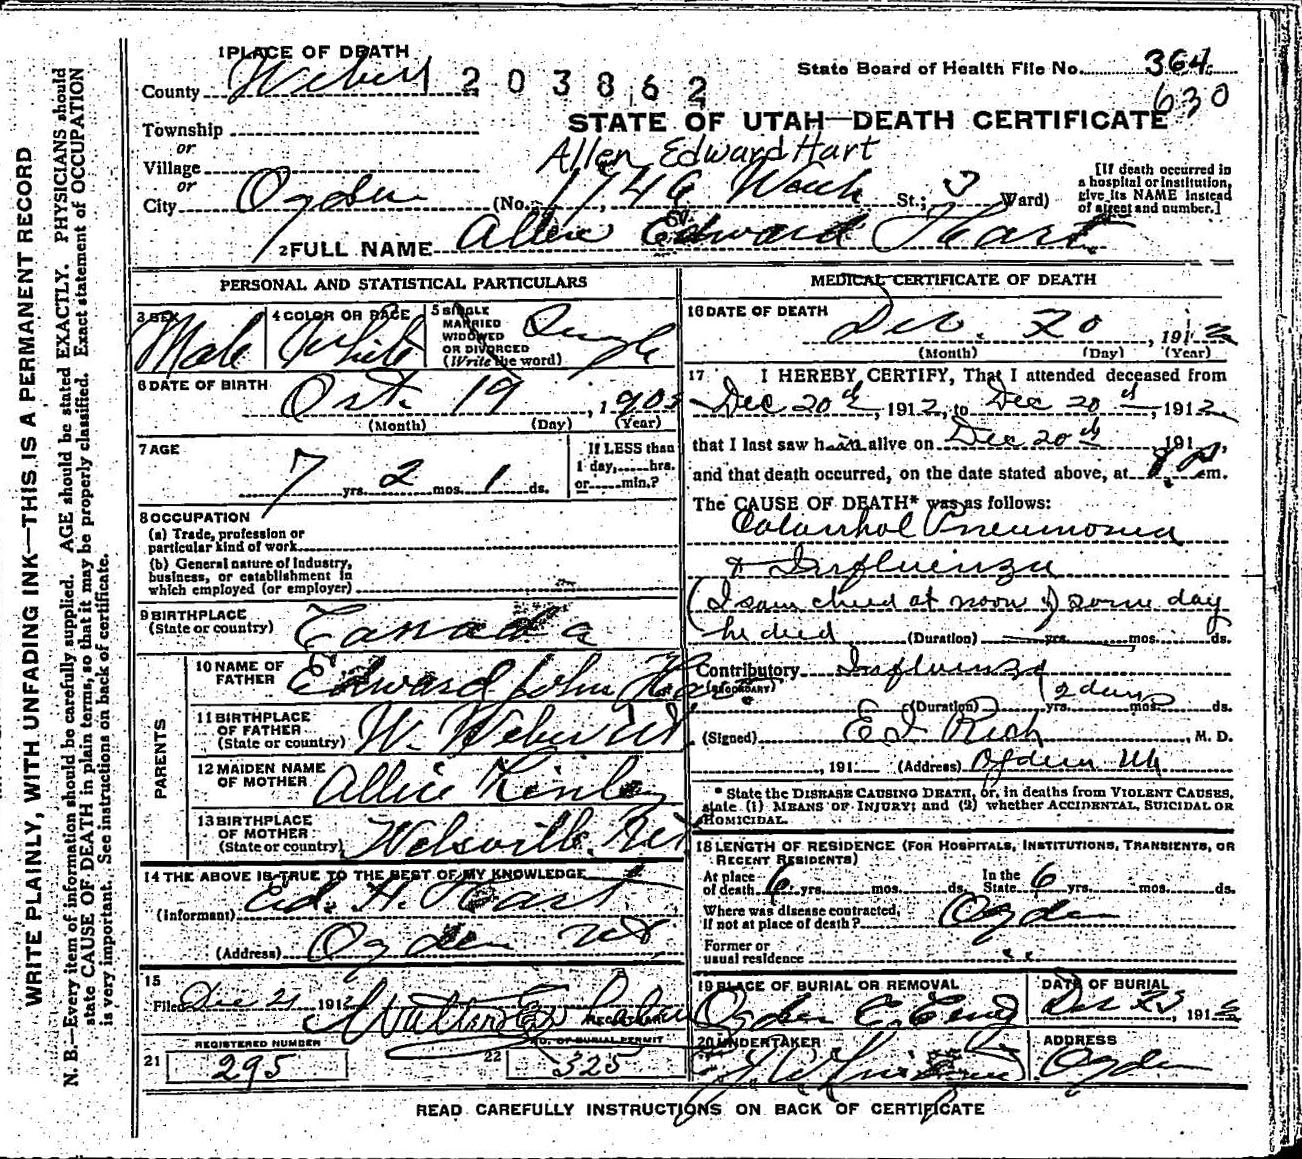 WRITE PLAINLY, WITH UNFADING INK—THIS IS A PERMANENT RECORD
N. B.—Every item of information should be carefully supplied. AGE should be stated EXACTLY. PHYSICIANS should
state CAUSE OF DEATH in plain terms, so that it may be properly classified. Exact statement of OCCUPATION
is very important. See instructions on back of certificate.
1 PLACE OF DEATH
County Weber
203862
State Board of Health File No. 364
630
STATE OF UTAH—DEATH CERTIFICATE
Township
or
Village
or
City Ogden
Allen Edward Hart
(No. 1746 Wash St.; 3 Ward)
[If death occurred in
a hospital or institution,
give its NAME instead
of street and number.]
2 FULL NAME Allen Edward Hart
PERSONAL AND STATISTICAL PARTICULARS
3 SEX
Male
4 COLOR OR RACE
White
5 SINGLE
MARRIED
WIDOWED
OR DIVORCED
(Write the word)
Single
6 DATE OF BIRTH
Oct. 19, 1905
(Month) (Day) (Year)
7 AGE
7 yrs. 2 mos. 1 ds.
If LESS than
1 day,......hrs.
or......min.?
8 OCCUPATION
(a) Trade, profession or
particular kind of work
(b) General nature of industry,
business, or establishment in
which employed (or employer)
9 BIRTHPLACE
(State or country)
Canada
PARENTS
10 NAME OF
FATHER
Edward John Hart
11 BIRTHPLACE
OF FATHER
(State or country)
W. Weber Ut
12 MAIDEN NAME
OF MOTHER
Allice
13 BIRTHPLACE
OF MOTHER
(State or country)
Welsville. Ut
14 THE ABOVE IS TRUE TO THE BEST OF MY KNOWLEDGE
(Informant) Ed. H. Hart
(Address) Ogden Ut
15
Filed Dec 21 1912
REGISTRAR
REGISTERED NUMBER
21 295
NO. OF BURIAL PERMIT
22 325
MEDICAL CERTIFICATE OF DEATH
16 DATE OF DEATH
Dec. 20, 1912
(Month) (Day) (Year)
17 I HEREBY CERTIFY, That I attended deceased from
Dec 20th, 1912, to Dec 20th, 1912
that I last saw him alive on Dec 20th 191
and that death occurred, on the date stated above, at 8 P.m.
The CAUSE OF DEATH* was as follows:
Catarrhal Pneumonia
& Influenza
(I saw child at noon of same day
he died (Duration) yrs. mos. ds.
Contributory Influenza
(SECONDARY)
(2 days)
(Duration) yrs. mos. ds.
(Signed) E I Rich, M. D.
, 191 (Address) Ogden Ut
* State the DISEASE CAUSING DEATH, or, in deaths from VIOLENT CAUSES,
state (1) MEANS OF INJURY; and (2) whether ACCIDENTAL, SUICIDAL OR
HOMICIDAL.
18 LENGTH OF RESIDENCE (FOR HOSPITALS, INSTITUTIONS, TRANSIENTS, OR
RECENT RESIDENTS)
At place
of death 6 yrs. mos. ds.
In the
State 6 yrs. mos. ds.
Where was disease contracted,
if not at place of death? Ogden
Former or
usual residence
19 PLACE OF BURIAL OR REMOVAL
Ogden C. Cem
DATE OF BURIAL
Dec 22, 1912
20 UNDERTAKER
ADDRESS
Ogden
READ CAREFULLY INSTRUCTIONS ON BACK OF CERTIFICATE